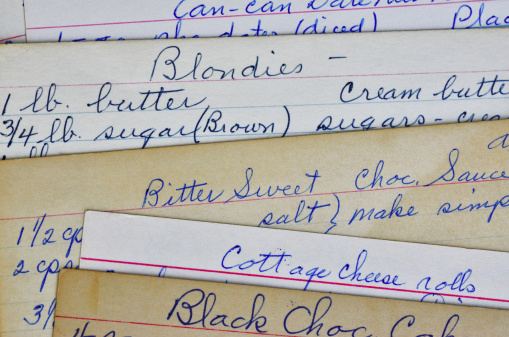 Can-Can
(diced)
Blondies -
1 lb. butter Cream butte
3/4 lb. sugar (Brown) sugars - crea
Bitter Sweet Choc. Sauce
salt } make simp
1 1/2 cp
2 cps
Cottage cheese rolls
3/
Black Choc Cak